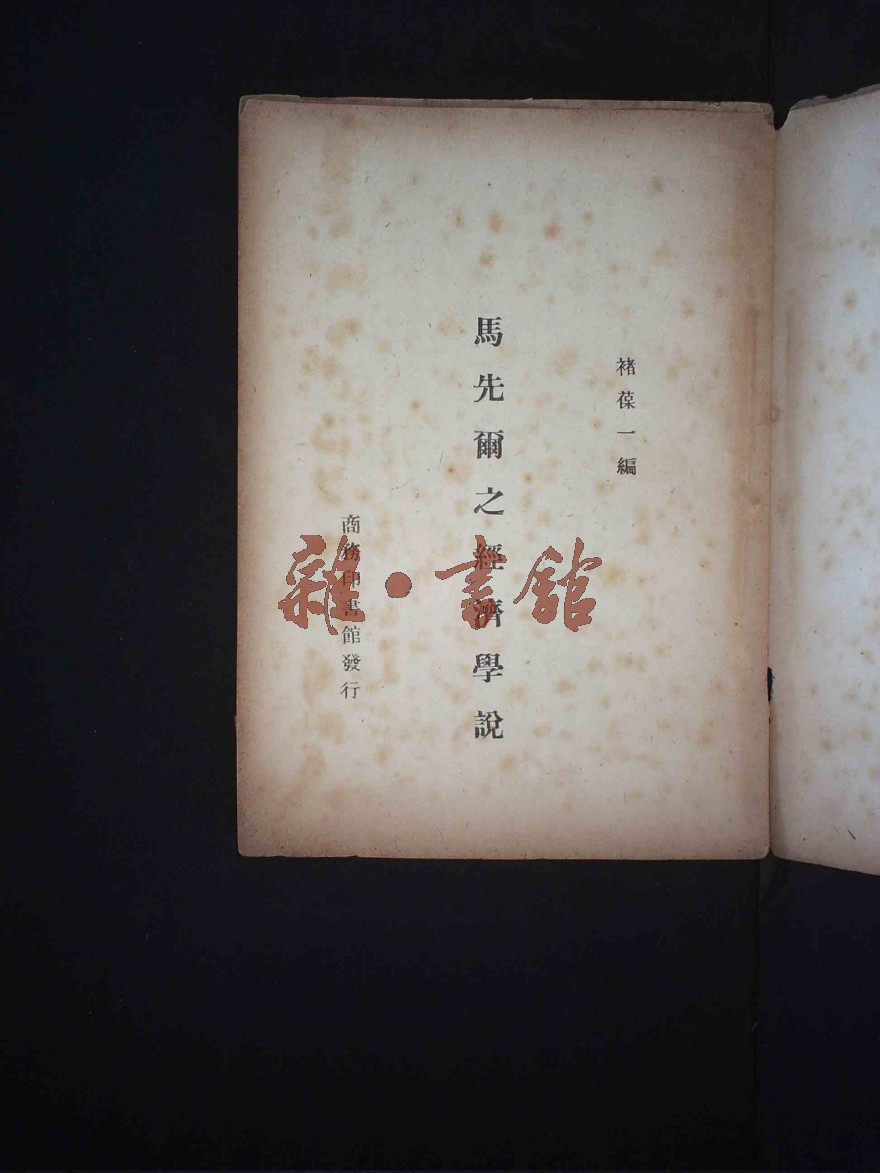 褚葆一編
馬先爾之經濟學說
商務印書館發行
雜·書館